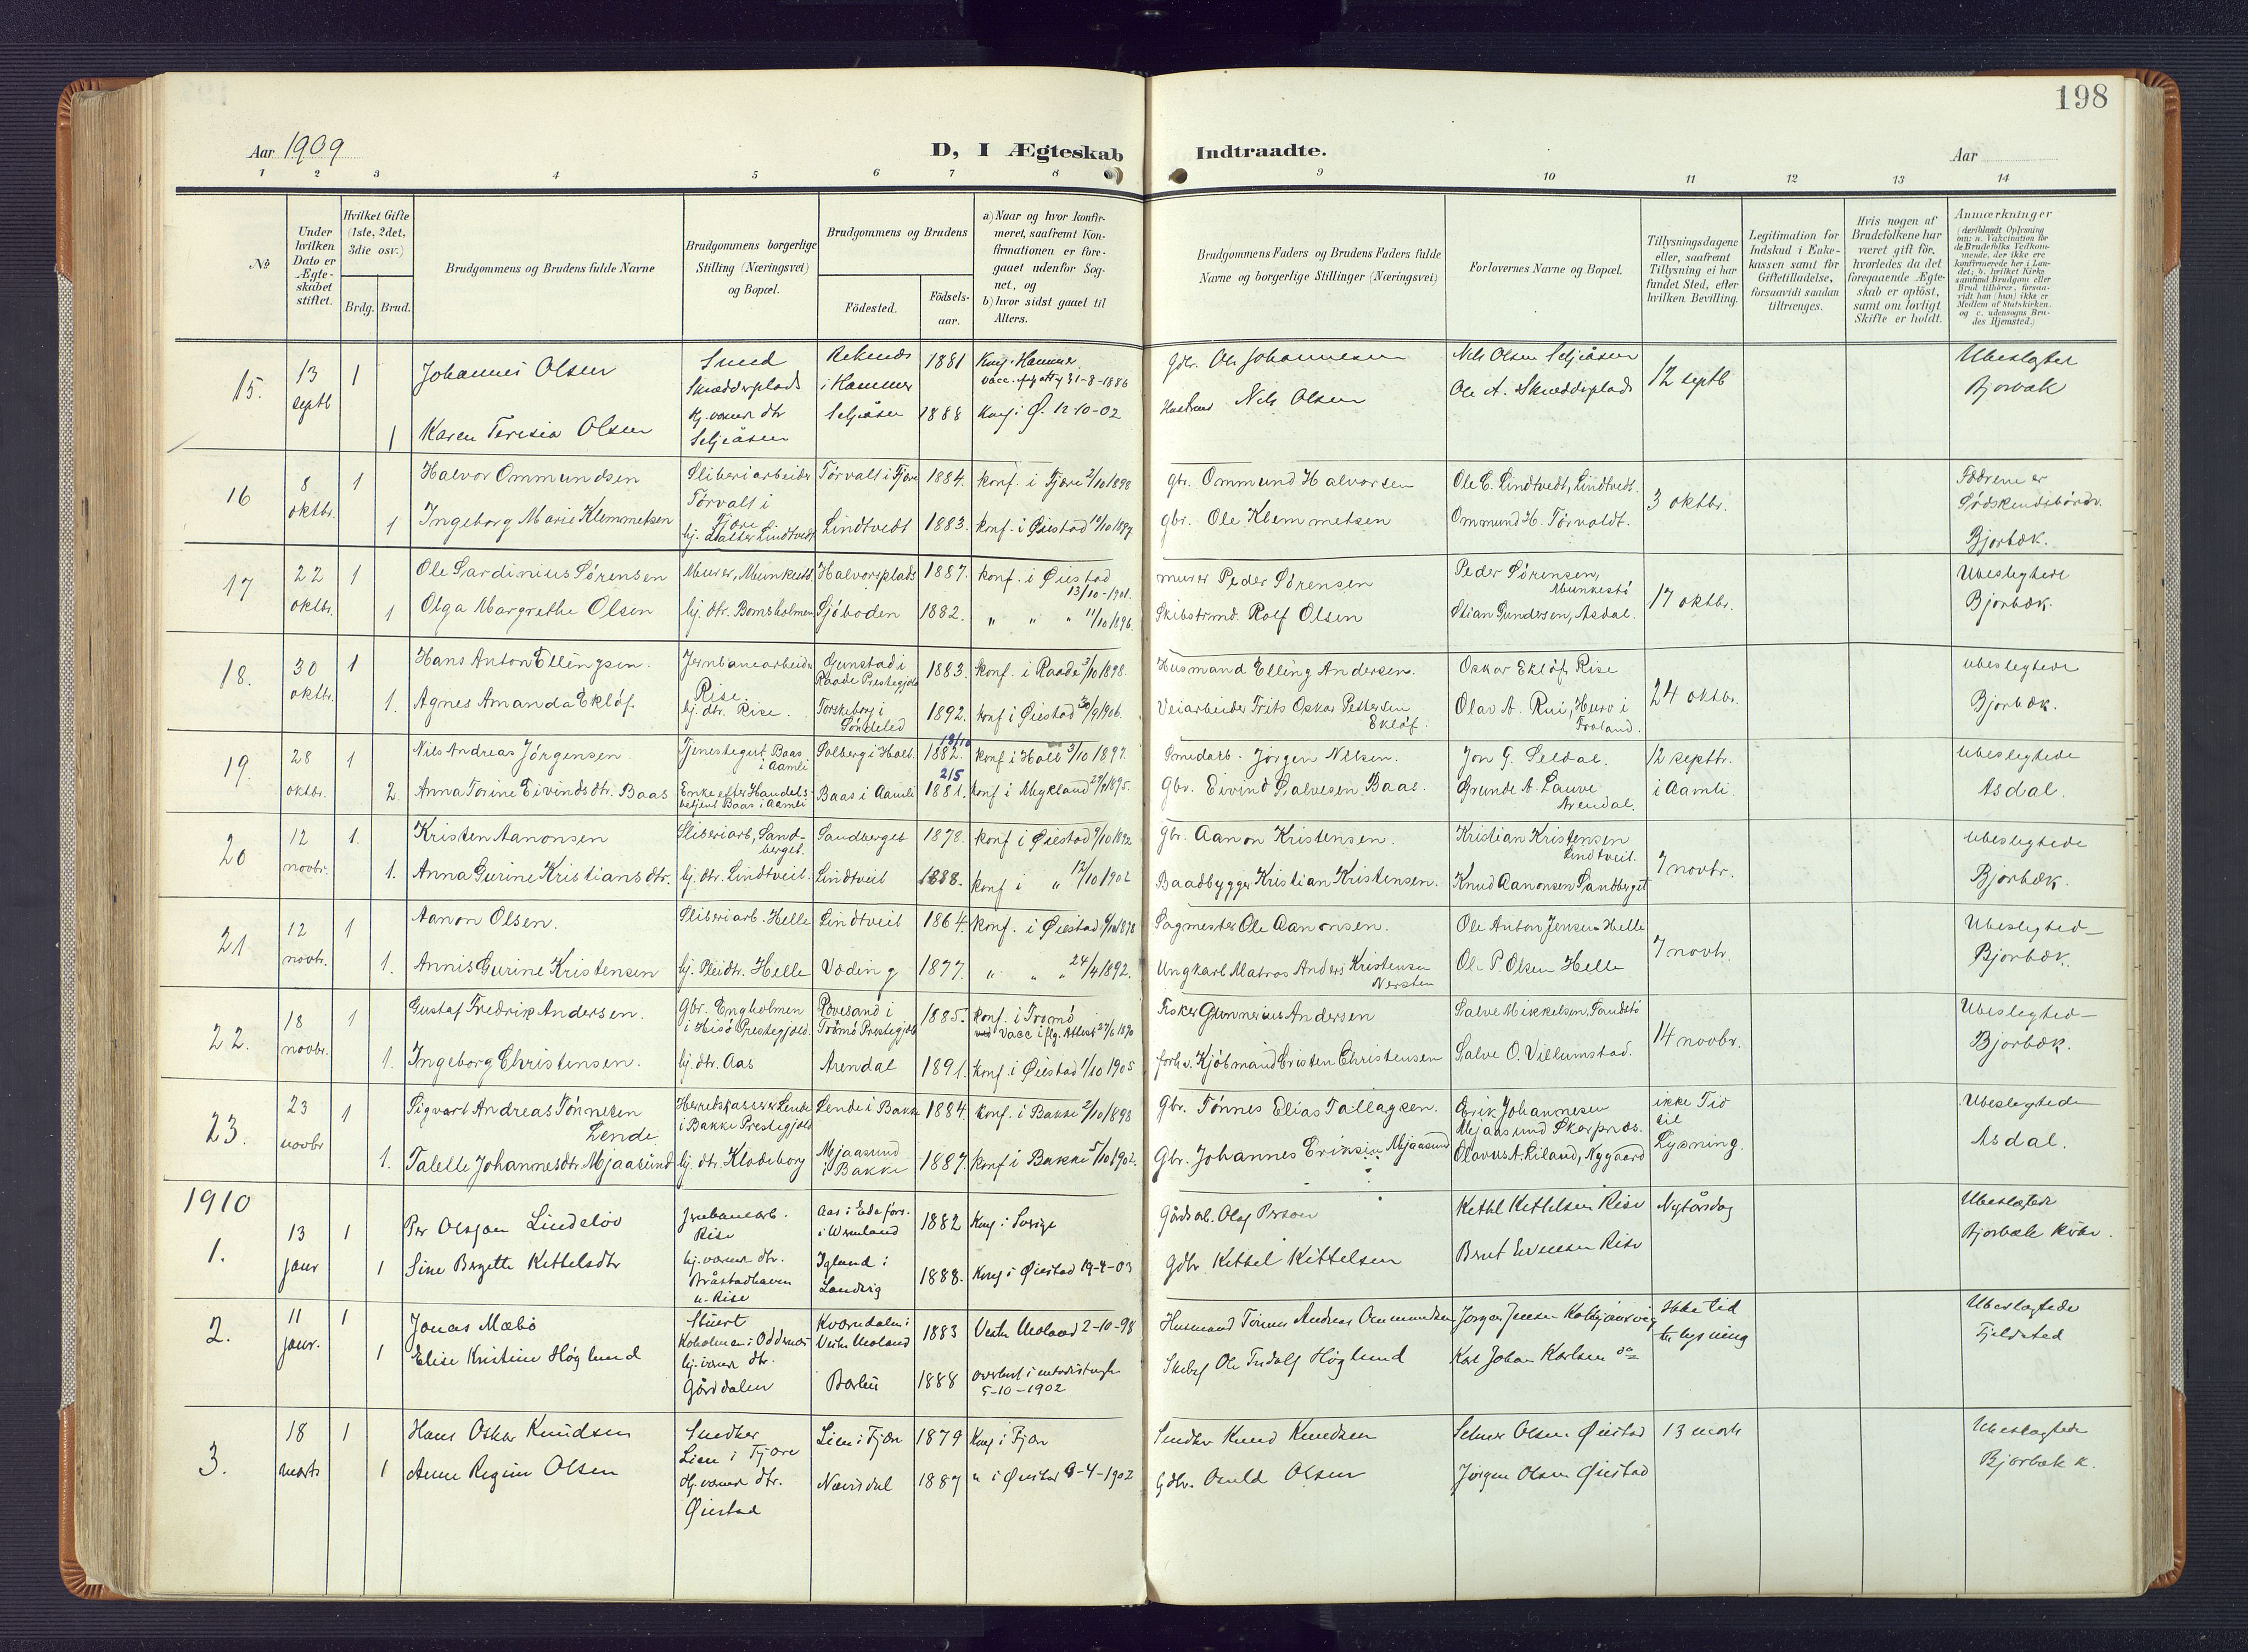 198
Aar 1909
D, I Ægteskab Indtraadte.
Aar
1 2 3 4 5 6 7 8 9 10 11 12 13 14
No
Under hvilken Dato er Ægteskabet stiftet.
Hvilket Gifte (1ste, 2det, 3die osv.)
Brdg. Brud.
Brudgommens og Brudens fulde Navne
Brudgommens borgerlige Stilling (Næringsvei) og Bopæl.
Brudgommens og Brudens
Födested.
Födsels-aar.
a) Naar og hvor konfirmeret, saafremt Konfirmationen er foregaaet udenfor Sognet, og
b) hvor sidst gaaet til Alters.
Brudgommens Faders og Brudens Faders fulde Navne og borgerlige Stillinger (Næringsvei)
Forlovernes Navne og Bopæl.
Tillysningsdagene eller, saafremt Tillysning ei har fundet Sted, efter hvilken Bevilling.
Legitimation for Indskud i Enkekassen samt for Giftetilladelse, forsaavidt saadan tiltrænges.
Hvis nogen af Brudefolkene har været gift för, hvorledes da det foregaaende Ægteskab er oplöst, samt om lovligt Skifte er holdt.
Anmærkninger (deriblandt Oplysning om: a. Vakcination for de Brudefolks Vedkommende, der ikke ere konfirmerede her i Landet; b. hvilket Kirkesamfund Brudgom eller Brud tilhörer, forsaavidt han (hun) ikke er Medlem af Statskirken, og c. udensogns Brudes Hjemsted.)
15. 13 septb 1 Johannes Olsen Smed Skrædderplads i Hammer 1881 Konf. Hammer vacc. 31-8-1886 Gdbr. Ole Johannesen Nils Olsen Seljeåsen 12 septb Ubeslegtet
1 Karen Teresia Olsen Hj.værende dtr Seljeåsen Seljeåsen 1888 Konf i Ø. 12-10-02 Nils Olsen Ole A. Skrædderplads Bjorbæk
16 8 oktbr. 1 Halvor Ommundsen Sliberiarbeider Törvolt i Fjære Törvolt i Fjære 1884. konf. i Fjære 2/10 1898 gbr. Ommund Halvorsen Ole E. Lindtvedt, Lindtvedt. 3 oktbr. Fædrene er Södskendebörn.
1 Ingeborg Marie Klemmetsen hj. datter Lindtvedt Lindtvedt 1883. konf. i Øiestad 17/10 1897. gbr. Ole Klemmetsen Ommund H. Törvoldt. Bjorbæk.
17 22 oktbr. 1 Ole Sardinius Sörensen Murer, Munkestö. Halvorsplads 1887. konf. i Øiestad 13/10-1901. murer Peder Sörensen Peder Sörensen, Munkestö 17 oktbr. Ubeslegtede
1 Olga Margrethe Olsen hj. dtr. Bomsholmen Sjöboden 1882. " " " 11/10 1896. Skibstrmd. Rolf Olsen Stian Gundersen, Asdal. Bjorbæk.
18. 30 oktbr. 1 Hans Anton Ellingsen. Jernbanearbeider Rise. Gunstad i Raade Prestegjeld 1883. konf. i Raade 3/10 1898. Husmand Elling Andersen. Oskar Eklöf, Rise 24 oktbr. ubeslegtede
1. Agnes Amanda Eklöf. hj. dtr. Rise. Torskeberg i Söndeled 1892. konf i Øiestad 30/9 1906. Veiarbeider Frits Oskar Pettersen Eklöf. Olav A. Rui, Hurv i Froland. Bjorbæk.
19. 28 oktbr. 1 Nils Andreas Jörgensen. Tjenestegut, Baas i Aamli Solberg i Holt. 18/10 1882. konf i Holt 3/10 1897. Smedarb. Jörgen Nilsen. Jon G. Seldal. 12 septbr. ubeslegtede
2. Anna Torine Eivindsdtr. Baas Enke efter Handelsbetjent Baas i Aamli Baas i Aamli 2/5 1881. konf i Mykland 29/9 1895. Gbr. Eivind Salvesen Baas. Grunde A. Lauve Arendal. i Aamli. Asdal.
20 12 novbr. 1. Kristen Aanonsen Sliberiarb, Sandberget. Sandberget 1878. konf i Øiestad 9/10 1892 gbr. Aanon Kristensen. Kristian Kristensen Lindtveit. 7 novbr. ubeslegtede
1. Anna Gurine Kristiansdtr. hj. dtr. Lindtveit. Lindtveit 1888. konf i " 12/10 1902 Baadbygger Kristian Kristensen. Knud Aanonsen Sandberget Bjorbæk.
21 12 novbr. 1 Aanon Olsen. Sliberiarb. Helle Lindtveit 1864. konf. i Øiestad 6/10 1878 Sagmester Ole Aanonsen. Ole Anton Jensen Helle 7 novbr. Ubeslegted
1. Annis Gurine Kristensen hj. Pleidtr. Helle Væding 1877. " " 24/4 1892. Ungkarl Matros Anders Kristensen Nersten Ole P. Olsen Helle Bjorbæk.
22. 18 novbr. 1 Gustaf Fredrik Andersen. Gbr. Engholmen i Hisö Prestegjeld. Revesand i Trömö Prestegjeld 1885. konf. i Tromö vacc iflg. Attest 27/6 1890 Fisker Gunnerius Andersen Salve Mikkelsen, Sandstö 14 novbr. Ubeslegted
1. Ingeborg Christensen. hj. dtr. Aas Arendal 1891. konf. i Øiestad 1/10 1905 forh. v. Kjöbmand Cristen Christensen Salve O. Villumstad. Bjorbæk.
23. 23 novbr 1 Sigvart Andreas Tönnesen Lende. Herredskasserer Lende i Bakke Prestegjeld Lende i Bakke 1884. Konf. i Bakke 2/10 1898 Gbr. Tönnes Elias Tallagsen. Erik Johannesen Mjaasund Skarpnæs. ikke Tid til Lysning. Ubeslegtede
1. Talelle Johannesdtr. Mjaasund hj. dtr. Klodeborg Mjaasund i Bakke 1887. konf i Bakke 5/10 1902. Gbr. Johannes Eriksen Mjaasund Olavus A. Liland, Nygaard Asdal.
1910
1. 13 januar 1 Per Olsson Lindelöv Jernbanearb. Rise Aas i Eda fors. i Wermland 1882 Konf i Sverige Gårdsarb. Olof Person Kettel Kettelsen Rise Nytårsdag Ubeslegtede
1 Sine Bergette Kettelsdtr hj. værende dtr. Bråstadhaven u. Rise Igland i Landvig 1888. Konf i Øiestad 19-4-03 Gdbr. Kittel Kittelsen Bernt Evensen Rise Bjorbæk kirke.
2. 11 januar. 1 Jonas Mæbö Stuert Koholmen i Oddernes Kværndalen i Vestre Moland 1883 Vestre Moland 2-10-98 Husmand Tönnes Andreas Ommundsen Jørgen Jensen Kolbjørnsvig Ikke tid til lysning Ubeslegtede
1 Elise Kristine Höglund hj. værende dtr. Gårddalen Barbu 1888 5-10-1902 Ole Rudolf Höglund Karl Johan Karlsen do Fjeldsted
3. 18 marts 1 Hans Oskar Knudsen Snedker Lien i Fjære Lien i Fjære 1879 Konf i Fjære Snedker Knud Knudsen Selmer Olsen Øiestad 13 marts Ubeslegtede
1 Anne Regine Olsen Hj. værende dtr. Øiestad Nævisdal 1887 " i Øiestad 6-4-1902 Gdbr. Osuld Olsen Jørgen Olsen Øiestad Bjorbæk k.